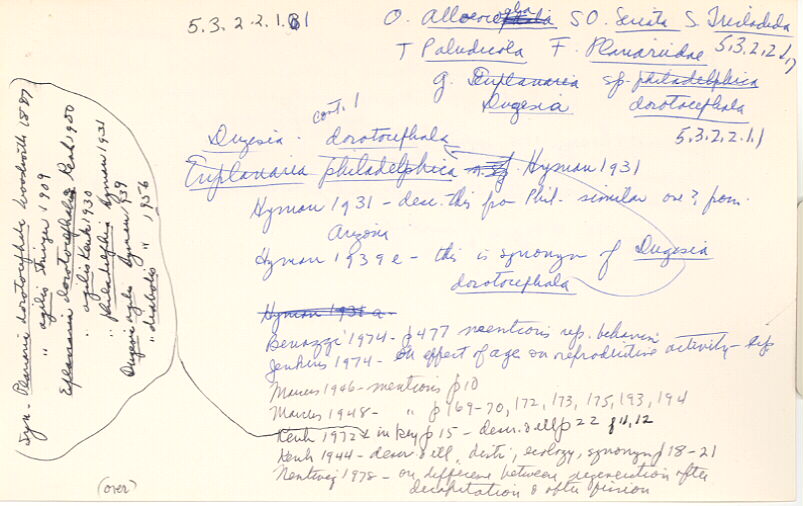 5.3.2.2.1.1
O. Alloeocoela SO. Seriata S. Tricladida
T Paludicola F. Planariidae 5.3.2.2.1.1
g. Euplanaria sp. philadelphica
Dugesia dorotocephala
5.3.2.2.1.1
cont. 1
Dugesia dorotocephala
Euplanaria philadelphica Hyman 1931
Hyman 1931 - desc. this from Phil. similar one? from
Arizona
Hyman 1939e - this is synonym of Dugesia
dorotocephala
Hyman 1931 a -
Benazzi 1974 - p477 mentions rep. behavior
Jenkins 1974 - on effect of age on reproductive activity -
Marcus 1946 - mentions p10
Marcus 1948 - " p 169-70, 172, 173, 175, 193, 194
Kenk 1972 in key p 15 - descr. & ill p 22 f 11, 12
Kenk 1944 - descr & ill, distr, ecology, synonym p 18-21
Nentwig 1978 - on difference between regeneration after
decapitation & after fission
(over)
Syn - Planaria dorotocephala Woodworth 1897
" agilis Stringer 1909
Euplanaria dorotocephala Kenk 1930
" agilis Kenk 1930
" philadelphica Hyman 1931
Dugesia agilis Hyman 1939
" diabolis " 1956